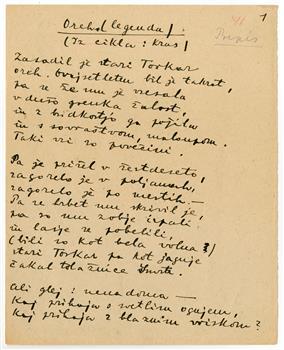 Oreh (legenda).
(Iz cikla: Kras)
41
1
Prepis
Zasadil je stari Torkar
oreh. Dvajset let mu bil je takrat,
pa se že mu je vrezala
v dušo grenka žalost,
in z bridkostjo ga pojila
in s sovraštvom, maloupom.
Taki vsi so povečini.
Pa je prišel v šestdeseto,
zagorelo že v poljanah,
zagorelo je po mestih. —
Pa se hrbet mu skrivil je,
pa so mu zobje izpali
in lasje so pobelili
(bili so kot bela volna)
stari Torkar pa kot jagnje
čakal tolažnice Smrti.
Ali glej: nenadoma —
Kaj prihaja s svetlim ognjem,
Kaj prihaja z blaznim vriskom?